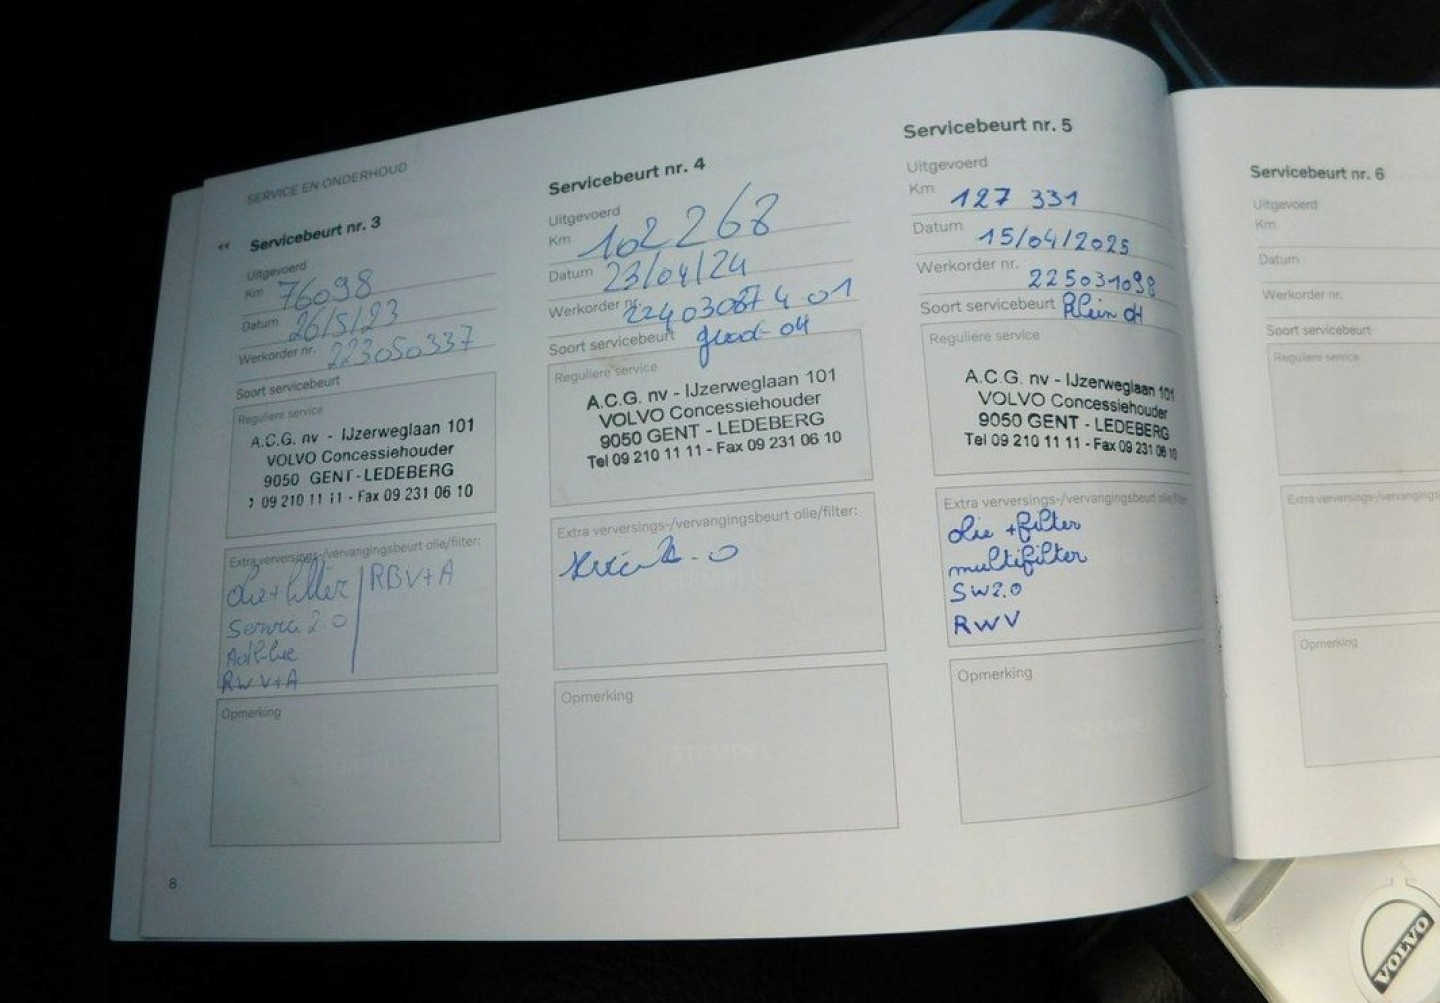 SERVICE EN ONDERHOUD
Servicebeurt nr. 3
Uitgevoerd
Km 76098
Datum 26/5/23
Werkorder nr. 223050337
Soort servicebeurt
Reguliere service
A.C.G. nv - IJzerweglaan 101
VOLVO Concessiehouder
9050 GENT - LEDEBERG
09 210 11 11 - Fax 09 231 06 10
Extra verversings-/vervangingsbeurt olie/filter:
olie + filter RBV+A
Service 2.0
AdBlue
RWV+A
Opmerking
8
Servicebeurt nr. 4
Uitgevoerd
Km 102268
Datum 23/04/24
Werkorder nr.
Soort servicebeurt
Reguliere service
A.C.G. nv - IJzerweglaan 101
VOLVO Concessiehouder
9050 GENT - LEDEBERG
Tel 09 210 11 11 - Fax 09 231 06 10
Extra verversings-/vervangingsbeurt olie/filter:
Opmerking
STEMPEL
Servicebeurt nr. 5
Uitgevoerd
Km 127 331
Datum 15/04/2025
Werkorder nr. 225031098
Soort servicebeurt Klein OH
Reguliere service
A.C.G. nv - IJzerweglaan 101
VOLVO Concessiehouder
9050 GENT - LEDEBERG
Tel 09 210 11 11 - Fax 09 231 06 10
Extra verversings-/vervangingsbeurt olie/filter
olie + filter
multifilter
SW2.0
RWV
Opmerking
Servicebeurt nr. 6
Uitgevoerd
Km
Datum
Werkorder nr.
Soort servicebeurt
Reguliere service
Extra verversings-/vervangings
Opmerking
VOLVO